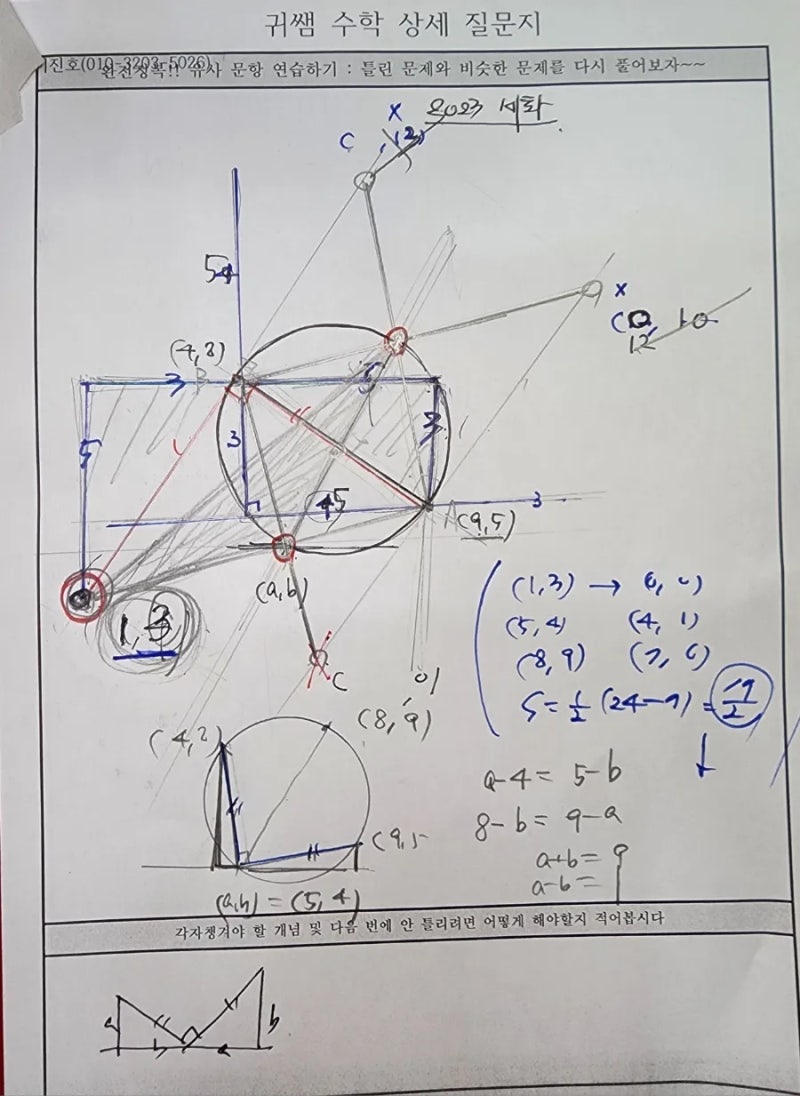 귀쌤 수학 상세 질문지
진호(010-3203-5026)
완전정복!! 유사 문항 연습하기 : 틀린 문제와 비슷한 문제를 다시 풀어보자~~
X 2023 세화
C
54
(4,8)
X
10
12
3
5
5
3
3
45
3
A(9,5)
(a,b)
1,3)
C
(1,3) →
(5,4) (4, 1)
(8, 9)
S = 1/2 (24-
(8, 9)
a-4 = 5-b
8-b = 9-a
a+b = 9
a-b =
(a,b) = (5,4)
각자챙겨야 할 개념 및 다음 번에 안 틀리려면 어떻게 해야할지 적어봅시다
a b
b a